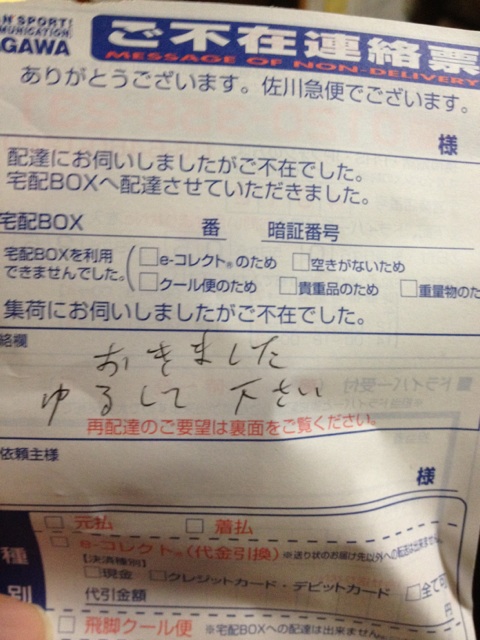 N SPORT
MUNICATION
GAWA
ご不在連絡票
MESSAGE OF NON-DELIVERY
ありがとうございます。佐川急便でございます。
様
配達にお伺いしましたがご不在でした。
宅配BOXへ配達させていただきました。
宅配BOX 番 暗証番号
宅配BOXを利用できませんでした。
□e-コレクト®のため □空きがないため
□クール便のため □貴重品のため □重量物のた
集荷にお伺いしましたがご不在でした。
絡欄
おきました
ゆるして下さい
再配達のご要望は裏面をご覧ください。
依頼主様
様
種別
□ 元払 □ 着払
□ e-コレクト®(代金引換) ※送り状のお届け先以外への転送は出来ません
【決済種別】
□現金・□クレジットカード・デビットカード □全て可
代引金額 円
□ 飛脚クール便 ※宅配BOXへの配達は出来ません